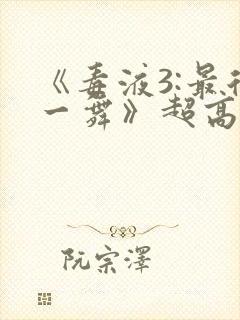 《毒液3:最
一舞》超高
阮宗澤